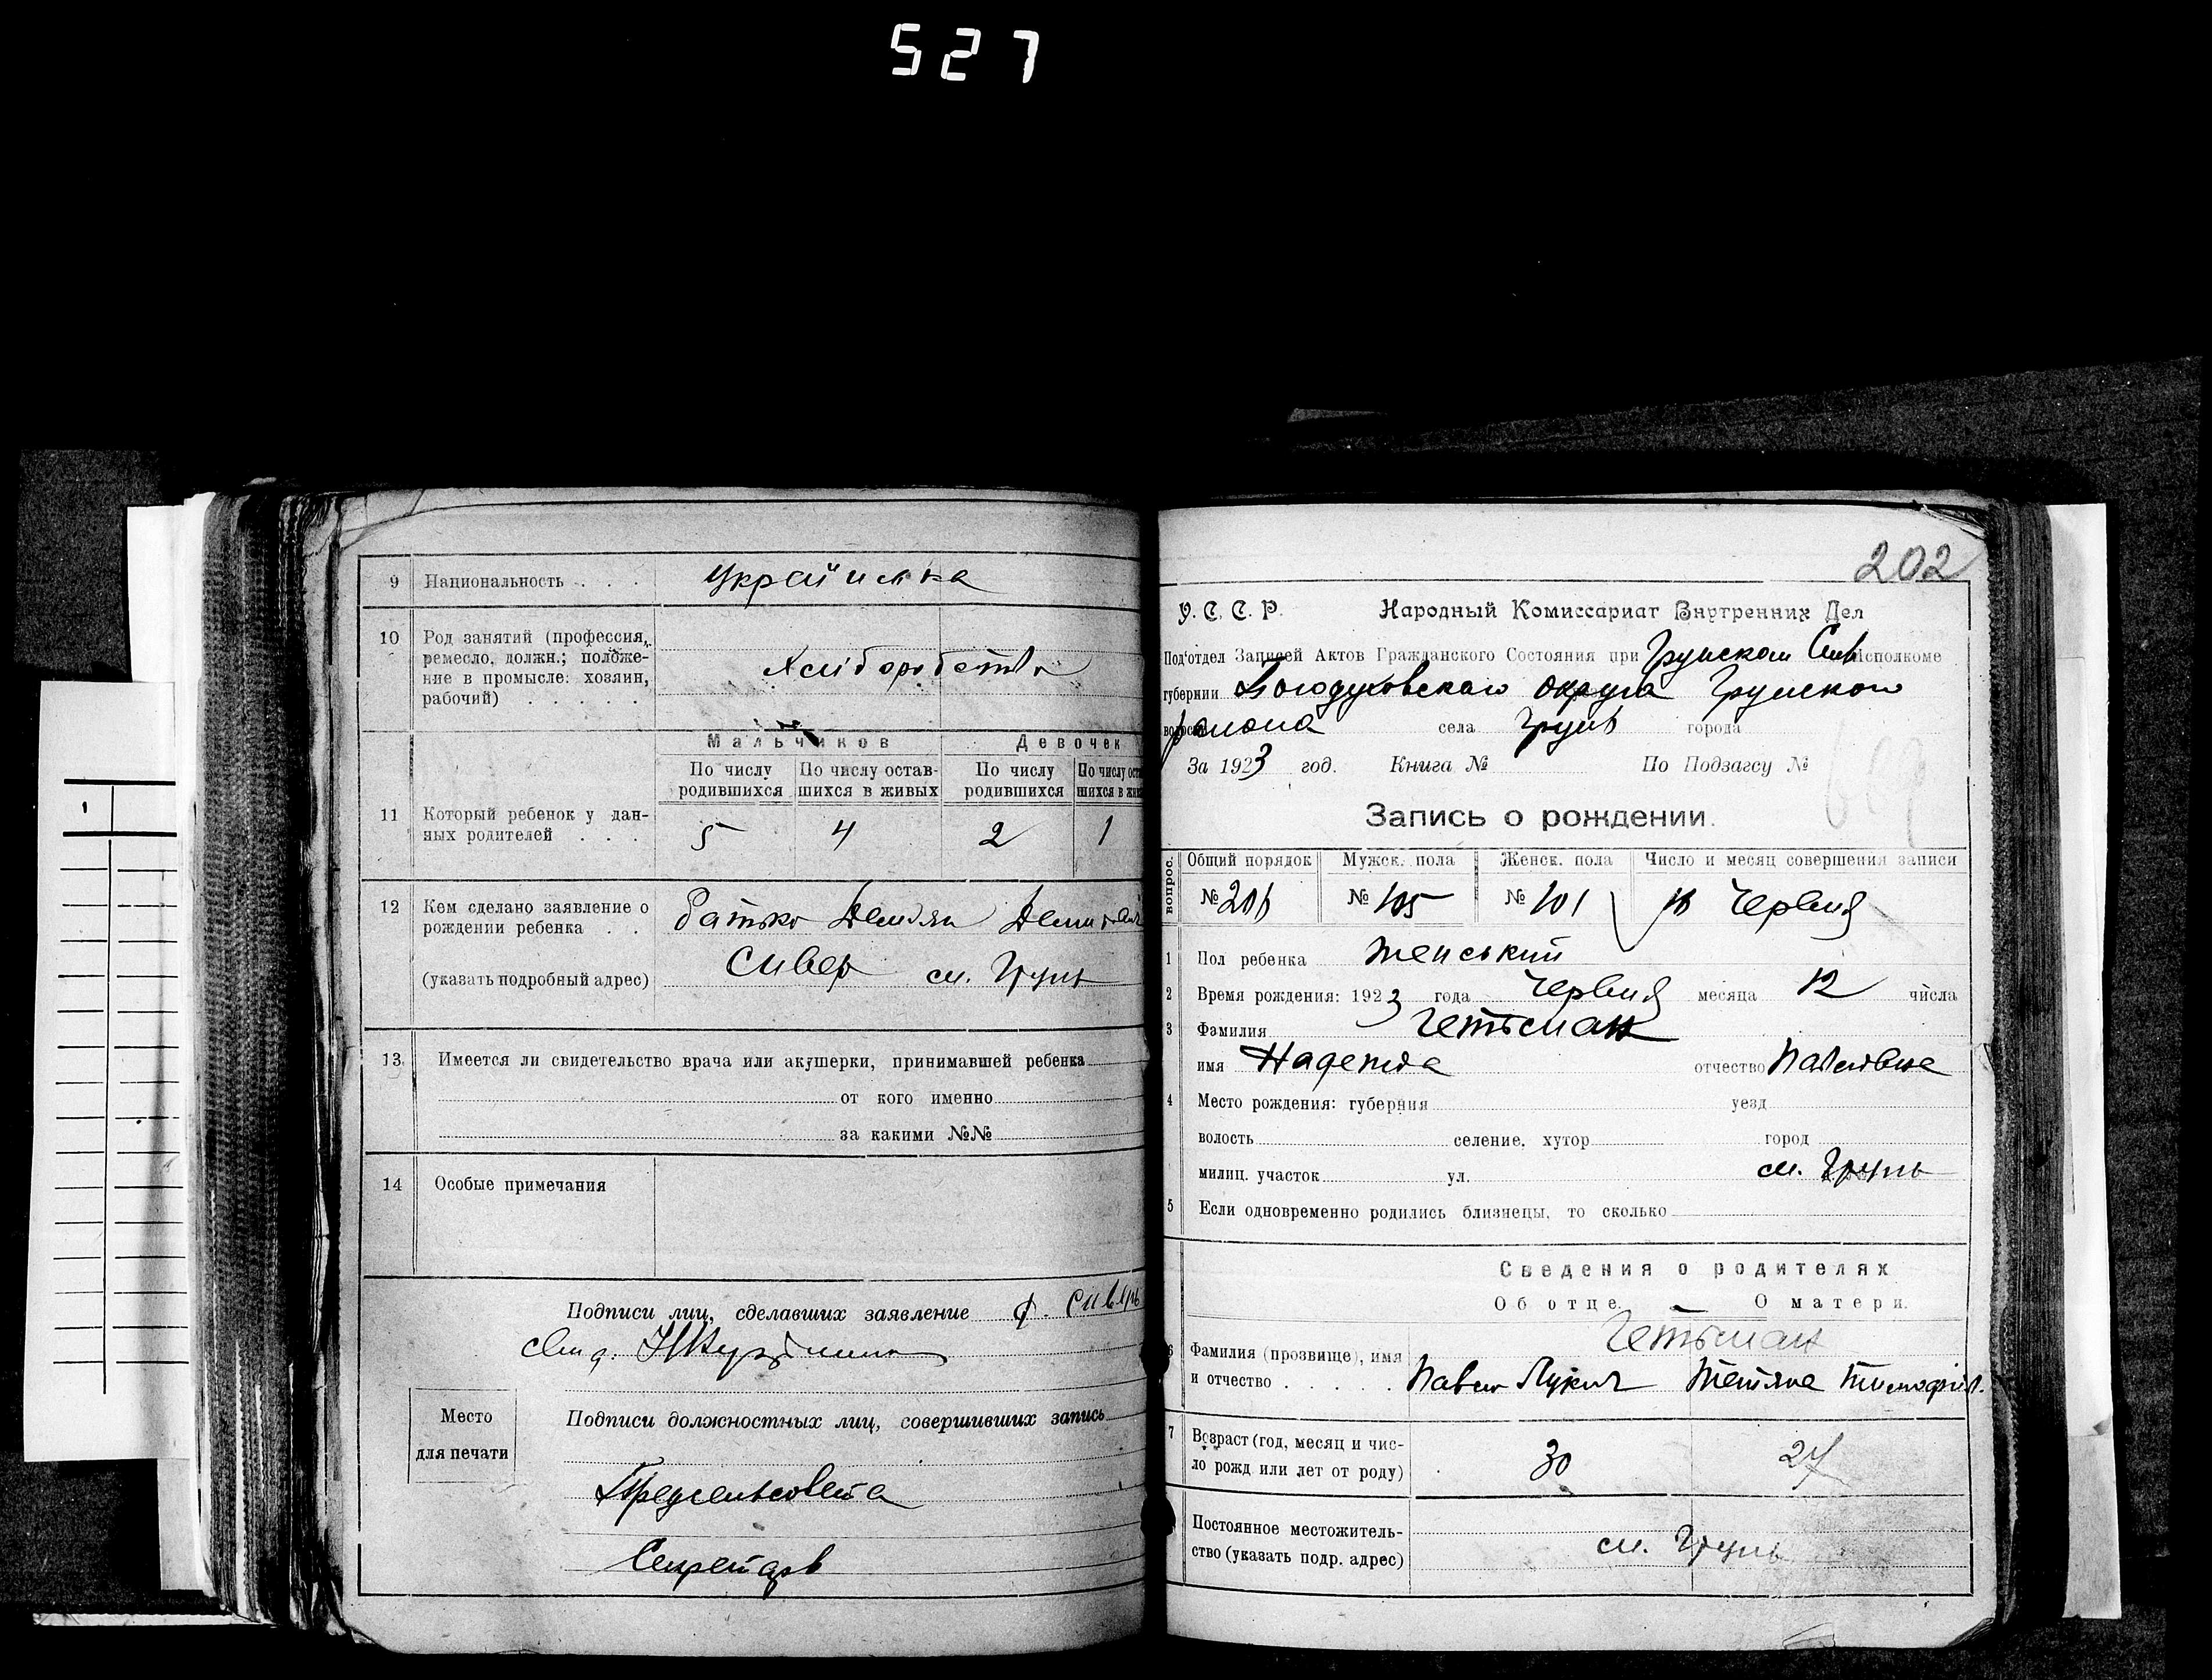 527
9 Национальность . . . Українська
10 Род занятий (профессия, ремесло, должн.; положе-
ние в промысле: хозяин,
рабочий) . . . . . Хліборобство
Мальчиков Девочек
По числу родившихся По числу остав-шихся в живых По числу родившихся По числу ост шихся в жи
11 Который ребенок у дан-
ных родителей . . . 5 4 2 1
12 Кем сделано заявление о
рождении ребенка . . батько Демян
(указать подробный адрес) Сивер см. Грунь
13 Имеется ли свидетельство врача или акушерки, принимавшей ребенка
от кого именно
за какими №№
14 Особые примечания
Подписи лиц, сделавших заявление
Место
для печати
Подписи должностных лиц, совершивших запись
Предсельсовета
Секретарь
202
У. С. С. Р. Народный Комиссариат Внутренних Дел
Под'отдел Записей Актов Гражданского Состояния при Грунском Исполкоме
губернии Богодуховского округа Грунского
района села Грунь города
За 1923 год. Книга № По Подзагсу №
Запись о рождении.
вопрос. Общий порядок Мужск. пола Женск. пола Число и месяц совершения записи
№ № 105 № 101 Червня
1 Пол ребенка женський
2 Время рождения: 1923 года Червня месяца 12 числа
3 Фамилия Гетьман
имя Надежда отчество Павловна
4 Место рождения: губерния уезд
волость селение, хутор город
милиц. участок ул. см. Грунь
5 Если одновременно родились близнецы, то сколько
Сведения о родителях
Об отце. О матери.
Гетьман
6 Фамилия (прозвище), имя
и отчество . . . . . Павло Лукич Тетяна Тимофіїв.
7 Возраст (год, месяц и чис-
ло рожд или лет от роду) 30 27
Постоянное местожитель-
ство (указать подр. адрес) см. Грунь